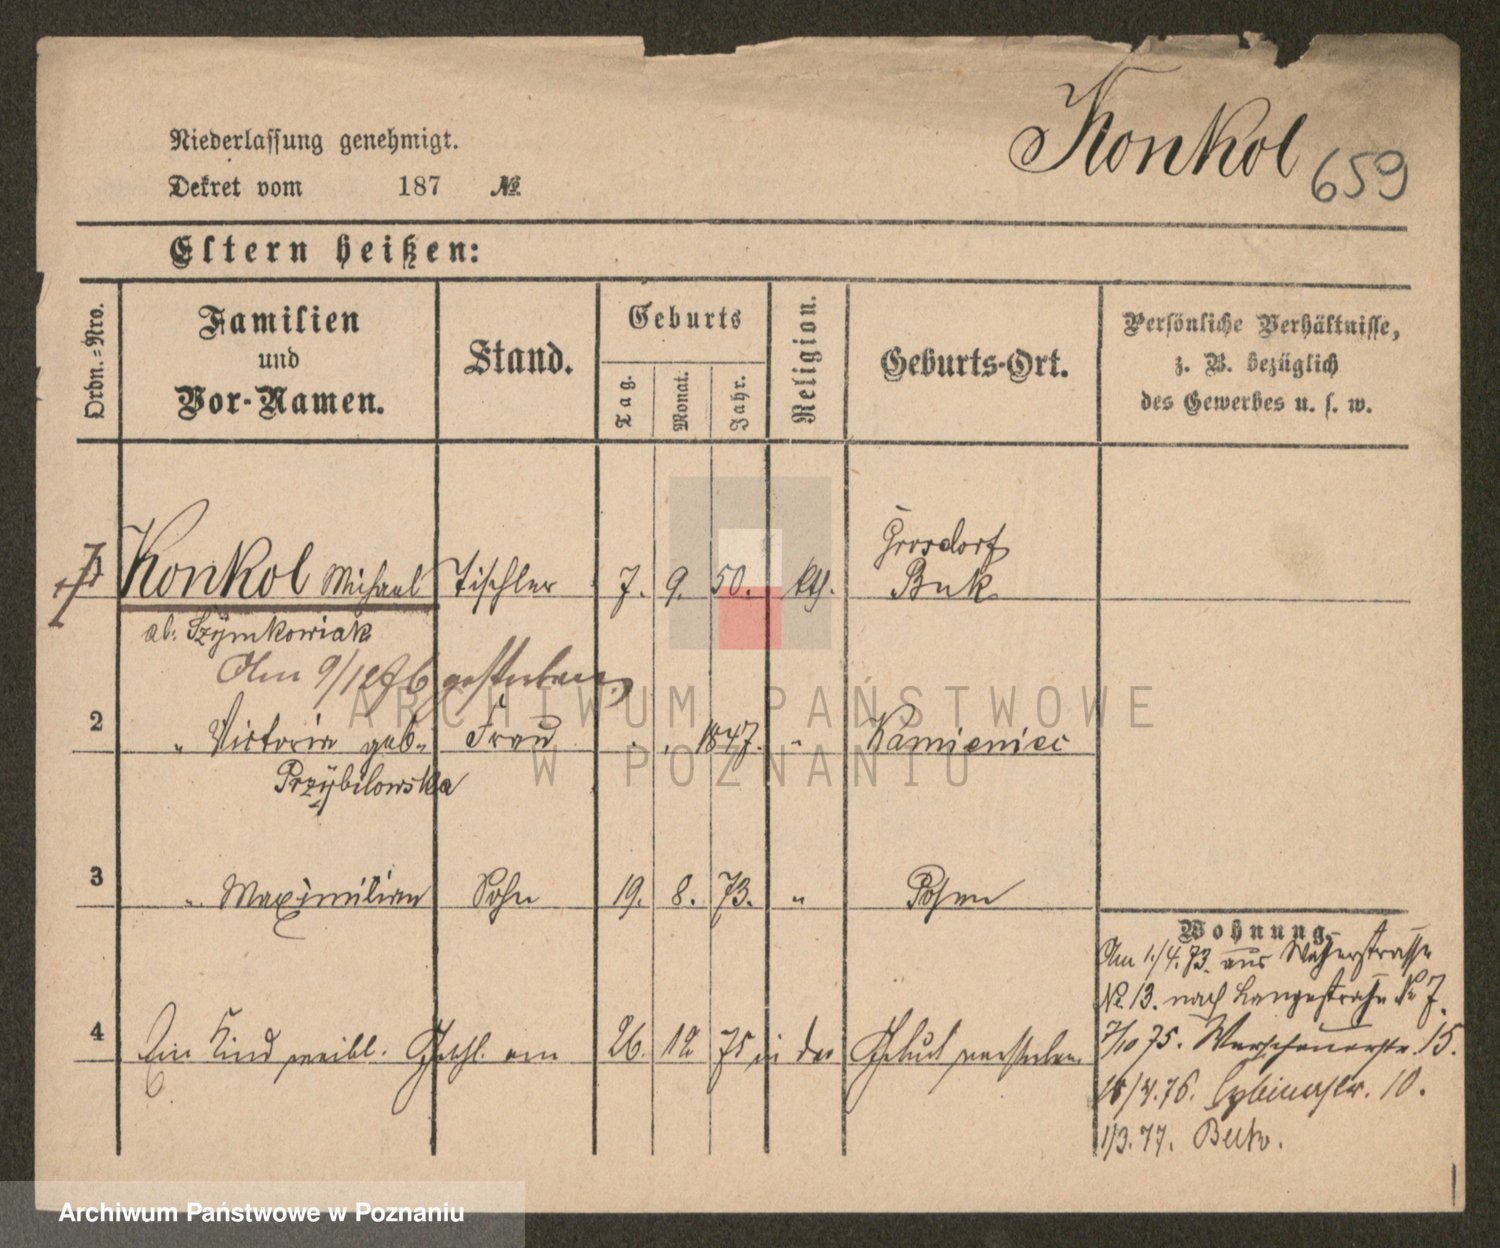 Konkol 659
Niederlassung genehmigt.
Dekret vom 187 №
Eltern heißen:
Ordn.=Nro.
Familien
und
Vor-Namen.
Stand.
Geburts
Tag.
Monat.
Jahr.
Religion.
Geburts-Ort.
Persönliche Verhältnisse,
z. B. bezüglich
des Gewerbes u. s. w.
Grosdorf
Konkol Michael Tischler 7. 9. 50. kth. Buk
al: Szÿmkowiak
Am 9/12 76 gestorben
2 " Victoria geb. Frau 1847. " Kamieniec
Przÿbilowska
3 " Maximilian Sohn 19. 8. 73. " Posen
Wohnung.
Am 1./4. 73. aus Wasserstrasse
№ 13. nach Langestraße № 7.
4 Ein Kind weibl. Geschl. am 26. 12 75 in der Geburt verstorben
7/10 75. Warschauerstr. 15.
/4. 76. Cybinastr. 10.
1/3. 77.
ARCHIWUM PAŃSTWOWE
W POZNANIU
Archiwum Państwowe w Poznaniu